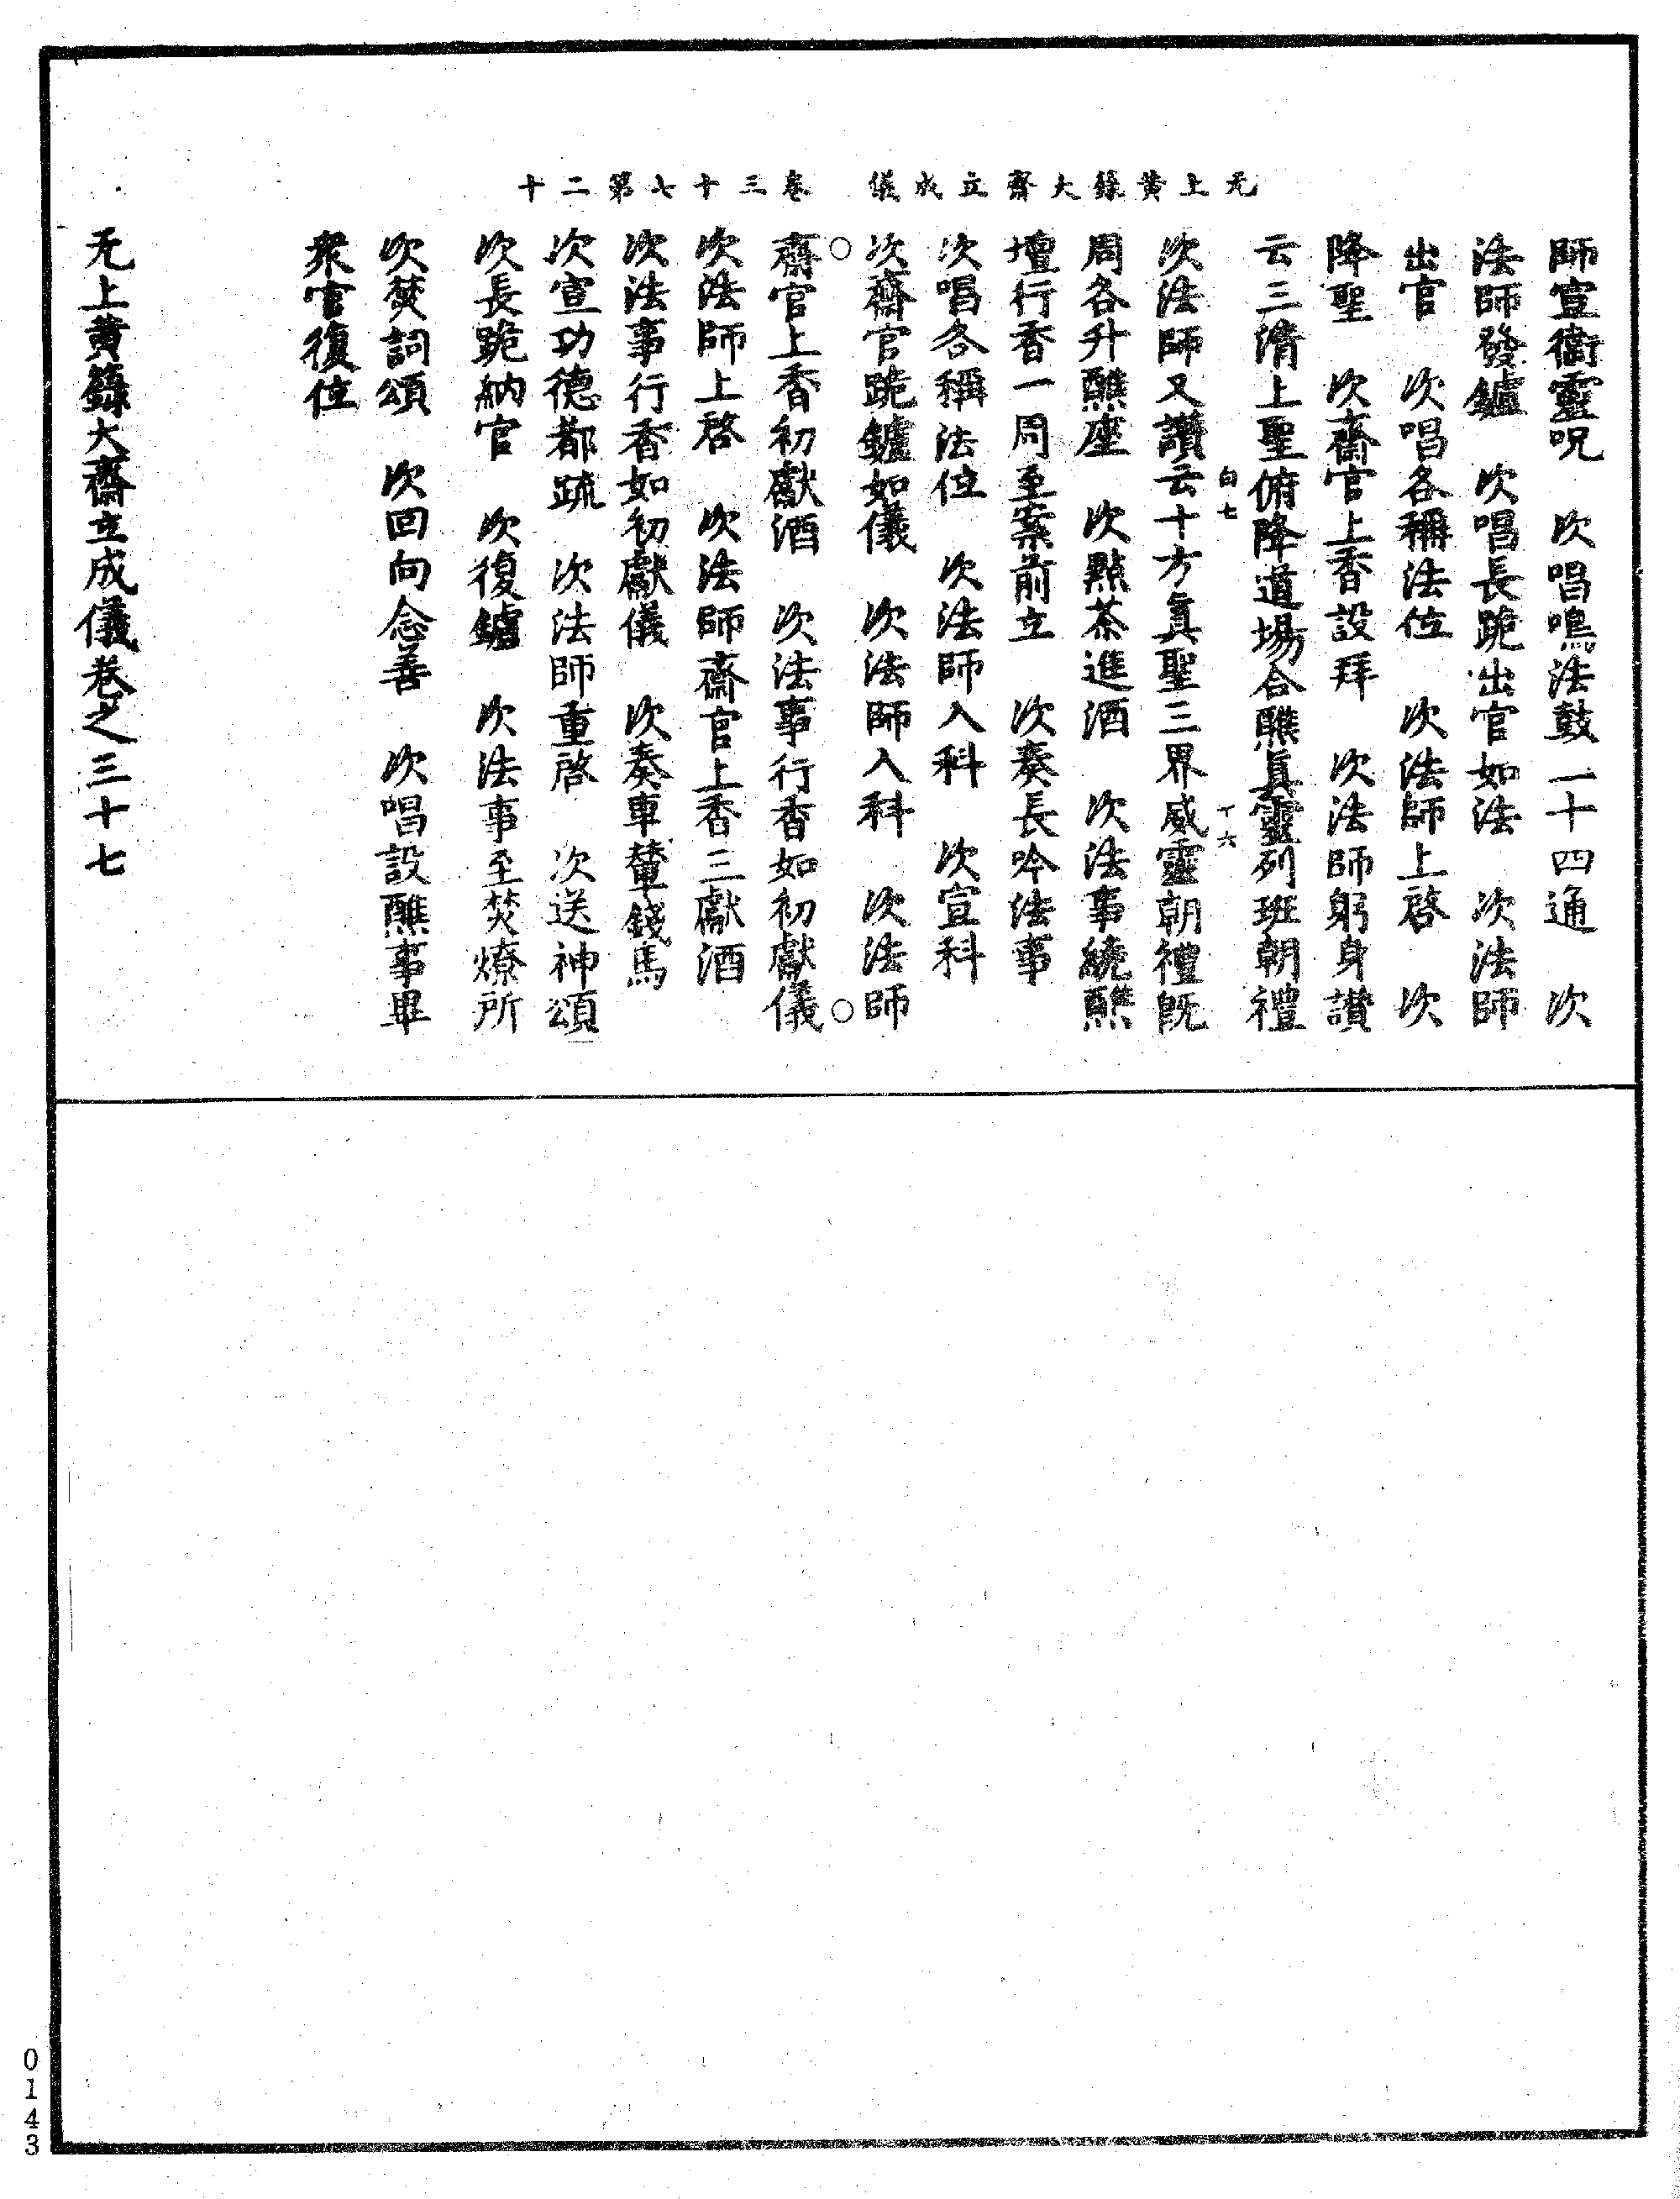 无上黃籙大齋立成儀　卷三十七第二十
師宣衞靈呪　次唱鳴法鼓二十四通　次
法師發鑪　次唱長跪出官如法　次法師
出官　次唱各稱法位　次法師上啓　次
降聖　次齋官上香設拜　次法師躬身讚
云三清上聖俯降道場合醮眞靈列班朝禮
白七　十六
次法師又讚云十方眞聖三界威靈朝禮旣
周各升醮座　次點茶進酒　次法事繞醮
壇行香一周至案前立　次奏長吟法事
次唱各稱法位　次法師入科　次宣科
次齋官跪鑪如儀　次法師入科　次法師
齋官上香初獻酒　次法事行香如初獻儀
次法師上啓　次法師齋官上香三獻酒
次法事行香如初獻儀　次奏車輦錢馬
次宣功德都疏　次法師重啓　次送神頌
次長跪納官　次復鑪　次法事至焚燎所
次焚詞頌　次回向念善　次唱設醮事畢
衆官復位
无上黃籙大齋立成儀卷之三十七
0143